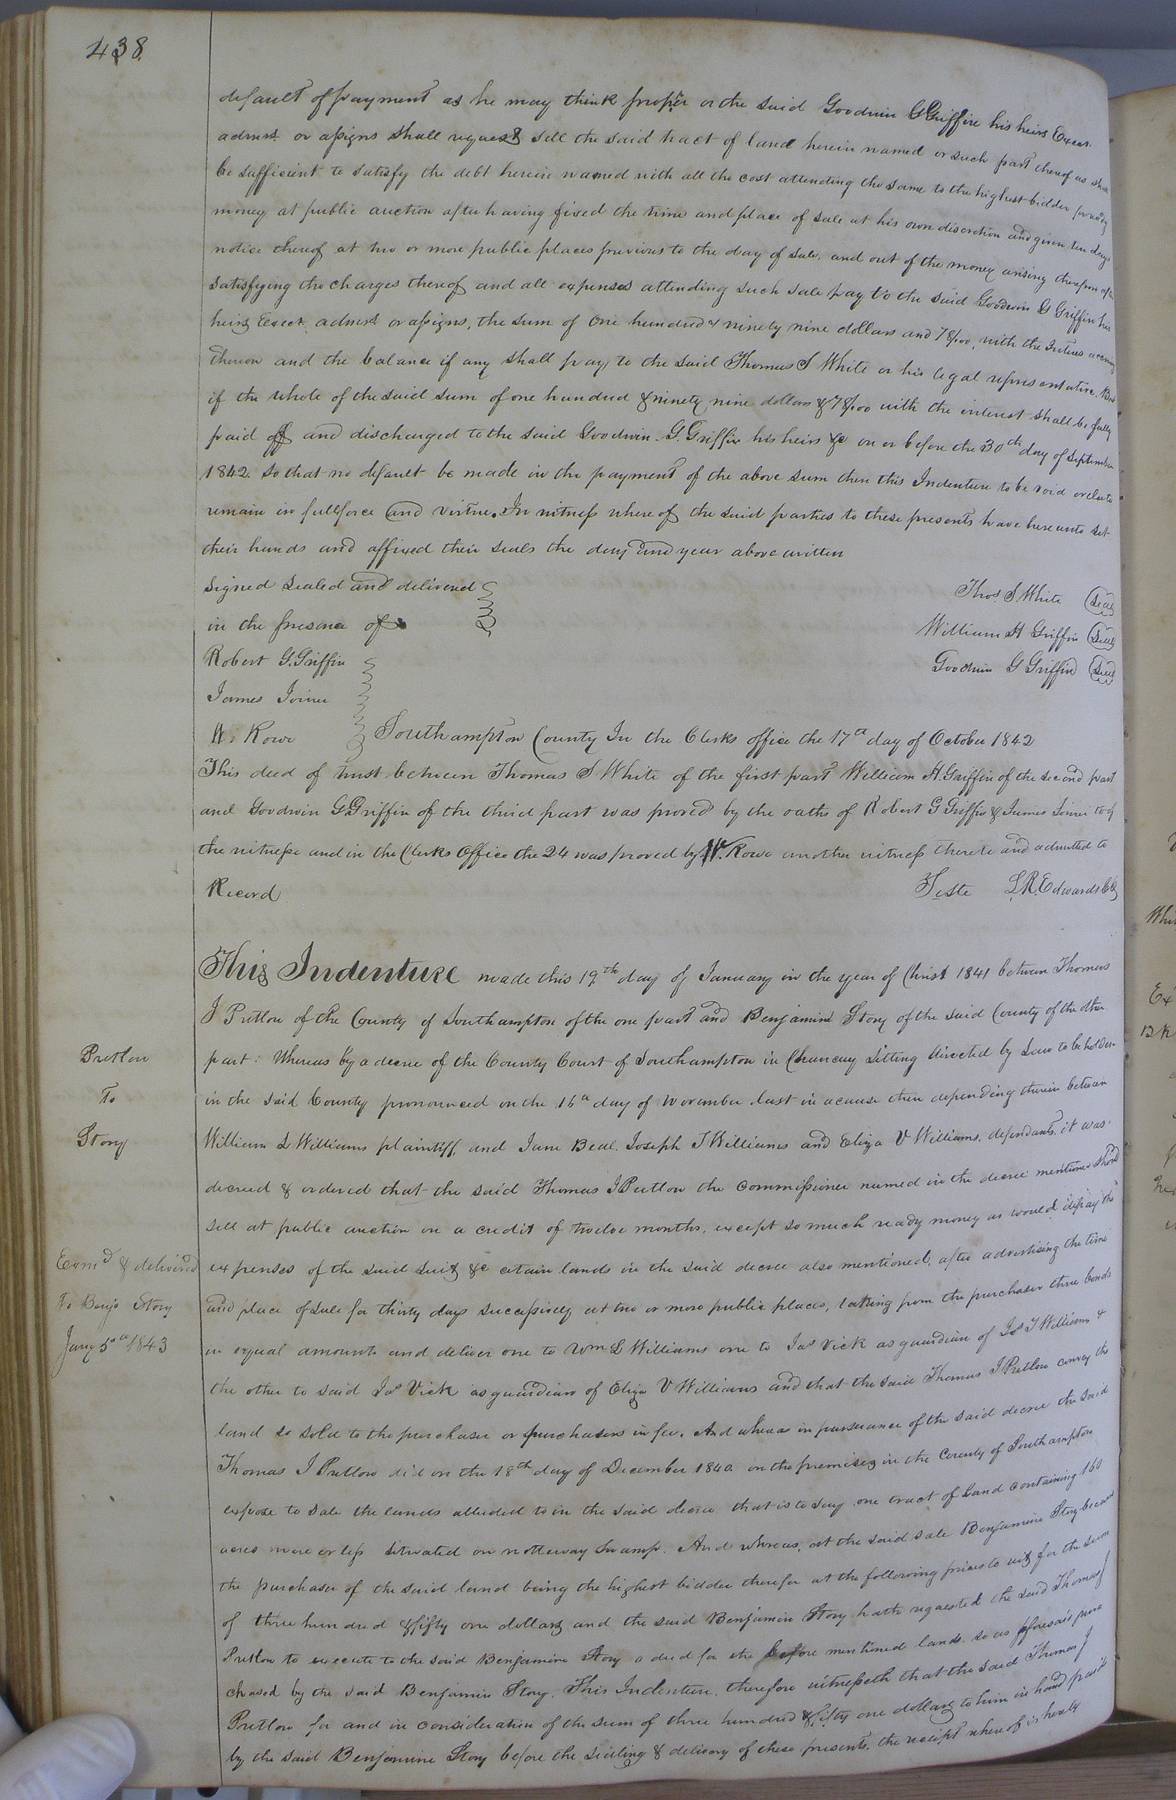 438
default of payment as he may think proper or the said Goodwin G Griffin his heirs Execr.
admrs. or assigns shall request sell the said tract of land herein named or such part thereof as shall
be sufficient to satisfy the debt herein named with all the cost attending the same to the highest bidder for ready
money at public auction after having fixed the time and place of sale at his own discretion and given ten days
notice thereof at two or more public places previous to the day of sale, and out of the money arising therefrom after
satisfying the charges thereof and all expenses attending such sale pay to the said Goodwin G Griffin his
heirs Execr. admrs or assigns, the sum of One hundred & ninety nine dollars and 78/100, with the Interest accruing
thereon and the balance if any shall pay to the said Thomas S White or his legal representative. But
if the whole of the said sum of one hundred & ninety nine dollars & 78/100 with the interest shall be fully
paid off and discharged to the said Goodwin. G. Griffin his heirs &c on or before the 30th day of September
1842 so that no default be made in the payment of the above sum then this Indenture to be void or else to
remain in full force and virtue. In witness where of the said parties to these presents have hereunto set
their hands and affixed their seals the day and year above written
Signed Sealed and delivered
in the presence of
Thos S. White (Seal)
William H Griffin (Seal)
Goodwin G Griffin (Seal)
Robert G. Griffin
James Joiner
W. Rowe
Southampton County In the Clerks office the 17th day of October 1842
This deed of trust between Thomas S White of the first part William H. Griffin of the second part
and Goodwin G Griffin of the third part was proved by the oaths of Robert G Griffin & James Joiner two of
the witness and in the Clerks Office the 24 was proved by W. Rowe another witness thereto and admitted to
Record
Teste L. R. Edwards Clk
This Indenture made this 19th day of January in the year of Christ 1841 between Thomas
J Pretlow of the County of Southampton of the one part and Benjamin Story of the said County of the other
part: Whereas by a decree of the County Court of Southampton in Chancery Sitting directed by Law to be holden
in the said County pronounced on the 16th day of November last in a cause then depending therein between
William L Williams plaintiff, and Jane Beal, Joseph T Williams and Eliza V Williams, defendants, it was
decreed & ordered that the said Thomas J Pretlow the Commissioner named in the decree mentioned should
sell at public auction on a credit of twelve months, except so much ready money as would defray the
expenses of the said suit &c certain lands in the said decree also mentioned, after advertising the time
and place of sale for thirty days successively at two or more public places, taking from the purchaser three bonds
in equal amounts and deliver one to Wm L Williams one to Jas Vick as guardian of Jos T Williams &
the other to said Jas Vick as guardian of Eliza V Williams and that the said Thomas J Pretlow convey the
land so sold to the purchaser or purchasers in fee. And whereas in pursuance of the said decree the said
Thomas J Pretlow did on the 18th day of December 1840 on the premises in the County of Southampton
expose to sale the lands alluded to in the said decree that is to say one tract of Land containing 160
acres more or less situated on nottoway Swamp. And whereas, at the said sale Benjamin Story became
the purchaser of the said land being the highest bidder therefor at the following price to wit for the sum
of three hundred & fifty one dollars and the said Benjamin Story hath requested the said Thomas J
Pretlow to execute to the said Benjamin Story a deed for the before mentioned lands so as aforesaid pur
chased by the said Benjamin Story. This Indenture, therefore witnesseth that the said Thomas J
Pretlow for and in consideration of the sum of three hundred & fifty one dollars to him in hand paid
by the said Benjamin Story before the sealing & delivery of these presents, the receipt where of is hereby
Pretlow
To
Story
Exmd & delivered
To Benja Story
Jany 5th 1843